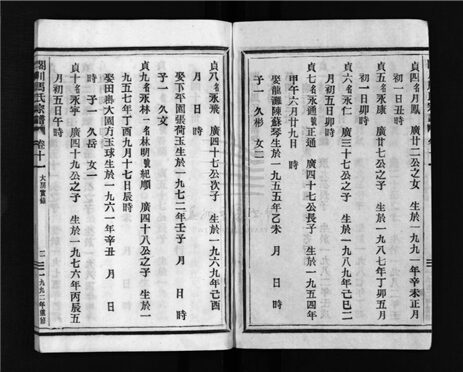 貞四名月鳳 廣廿二公之女 生於一九九一年辛未正月
初一日卯時
貞五名永康 廣廿七公之子 生於一九八七年丁卯五月
初一日卯時
貞六名永仁 廣三十七公之子 生於一九八九年己巳二
月 日 時
貞七名永通號正通 廣四十七公長子 生於一九五四年
甲午六月廿九日 時
娶龍灘陳蘇琴生於一九五五年乙未 月 日 時
子一 久彬 女二
貞八名永飛 廣四十七公次子 生於一九六九年己酉
月 日 時
娶下岸園張荷玉生於一九七二年壬子 月 日 時
子一 久文
貞九名永林一名林明號紀順 廣四十八公之子 生於一
九五七年丁酉九月十七日辰時
娶田嶴大園方玉球生於一九六一年辛丑 月 日
時 子一 久岳 女一
貞十名永寧 廣四十九公之子 生於一九七六年丙辰五
月初五日午時
馬氏宗譜 卷十一 大房實錄 一九九二年重修